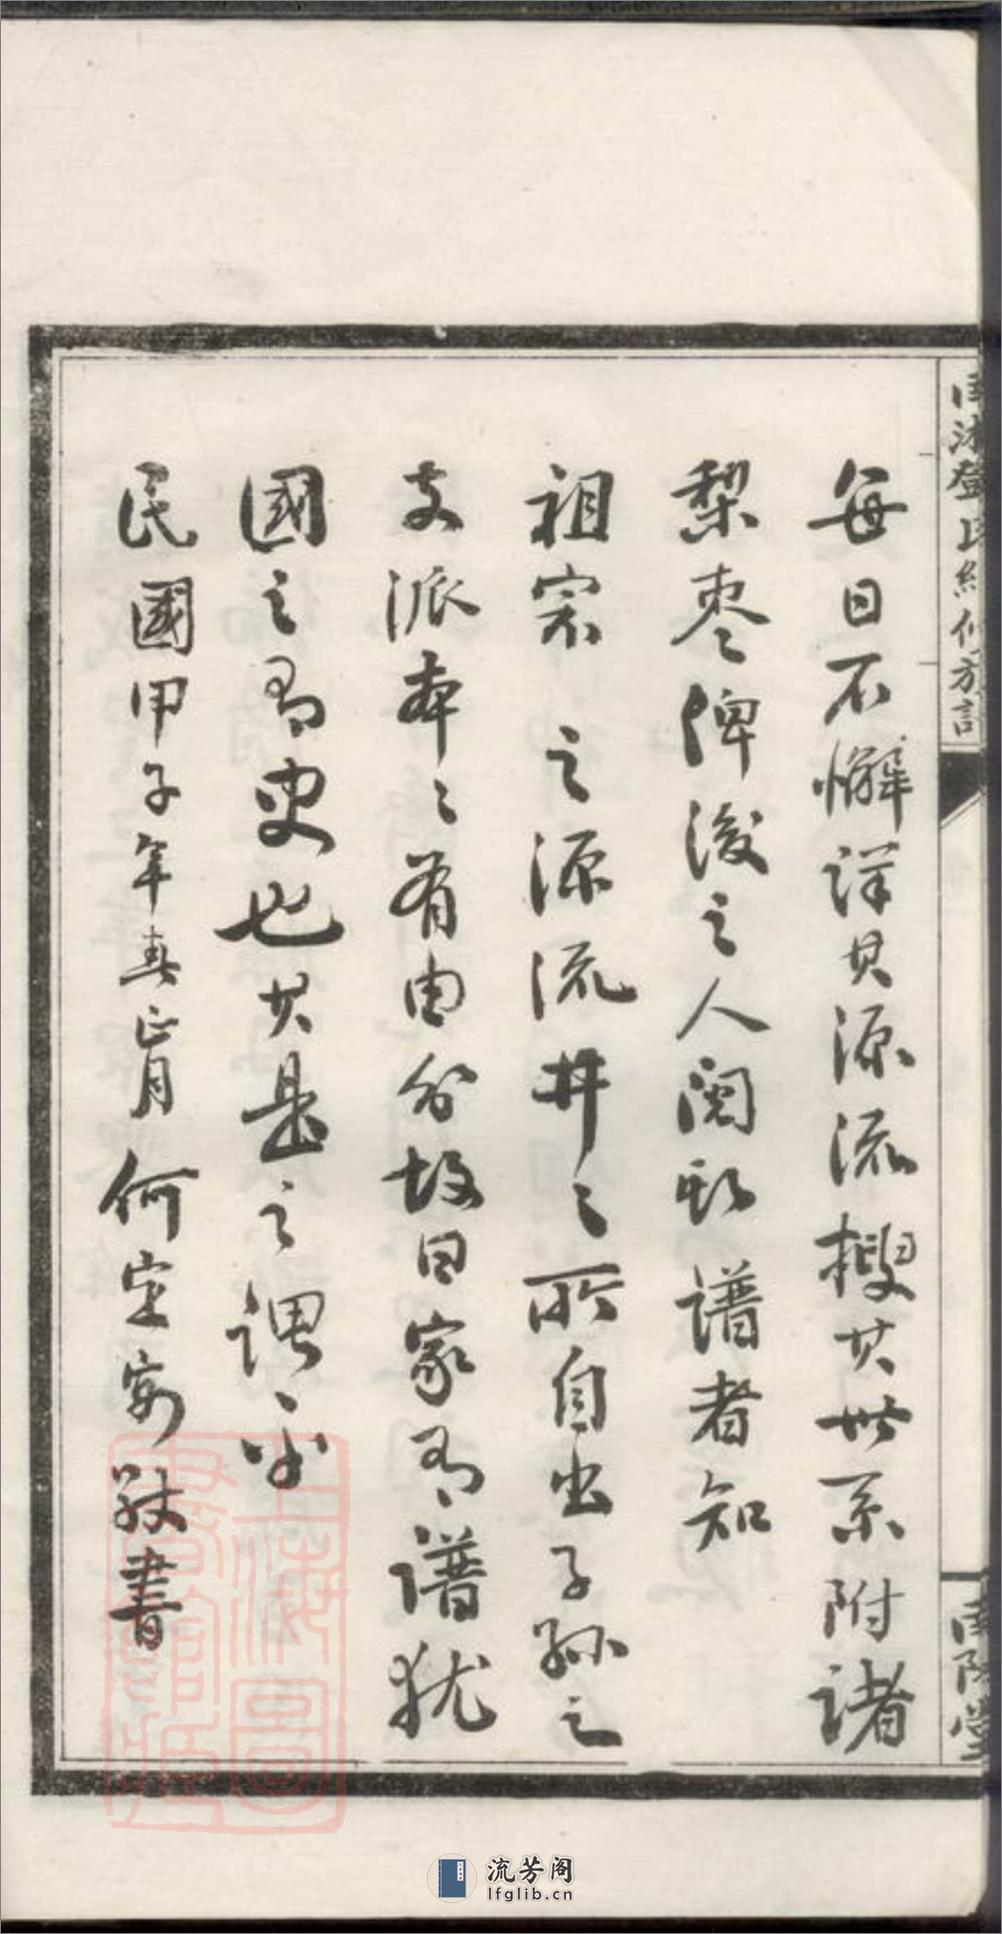 每日不懈詳其源流搜其世系附諸
梨棗俾後之人閱斯譜者知
祖宗之源流井〻所自出子孫之
支派本〻有由分故曰家有譜猶
國之有史也其是之謂乎
民國甲子年春正月何定安敬書
南陽堂
上海圖書館藏
流芳阁
lfglib.cn